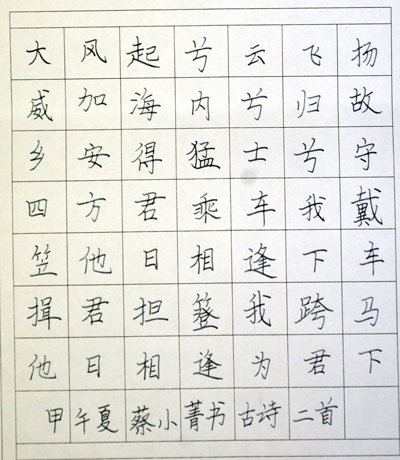 大风起兮云飞扬
威加海内兮归故
乡安得猛士兮守
四方君乘车我戴
笠他日相逢下车
揖君担簦我跨马
他日相逢为君下
甲午夏蔡小菁书古诗二首